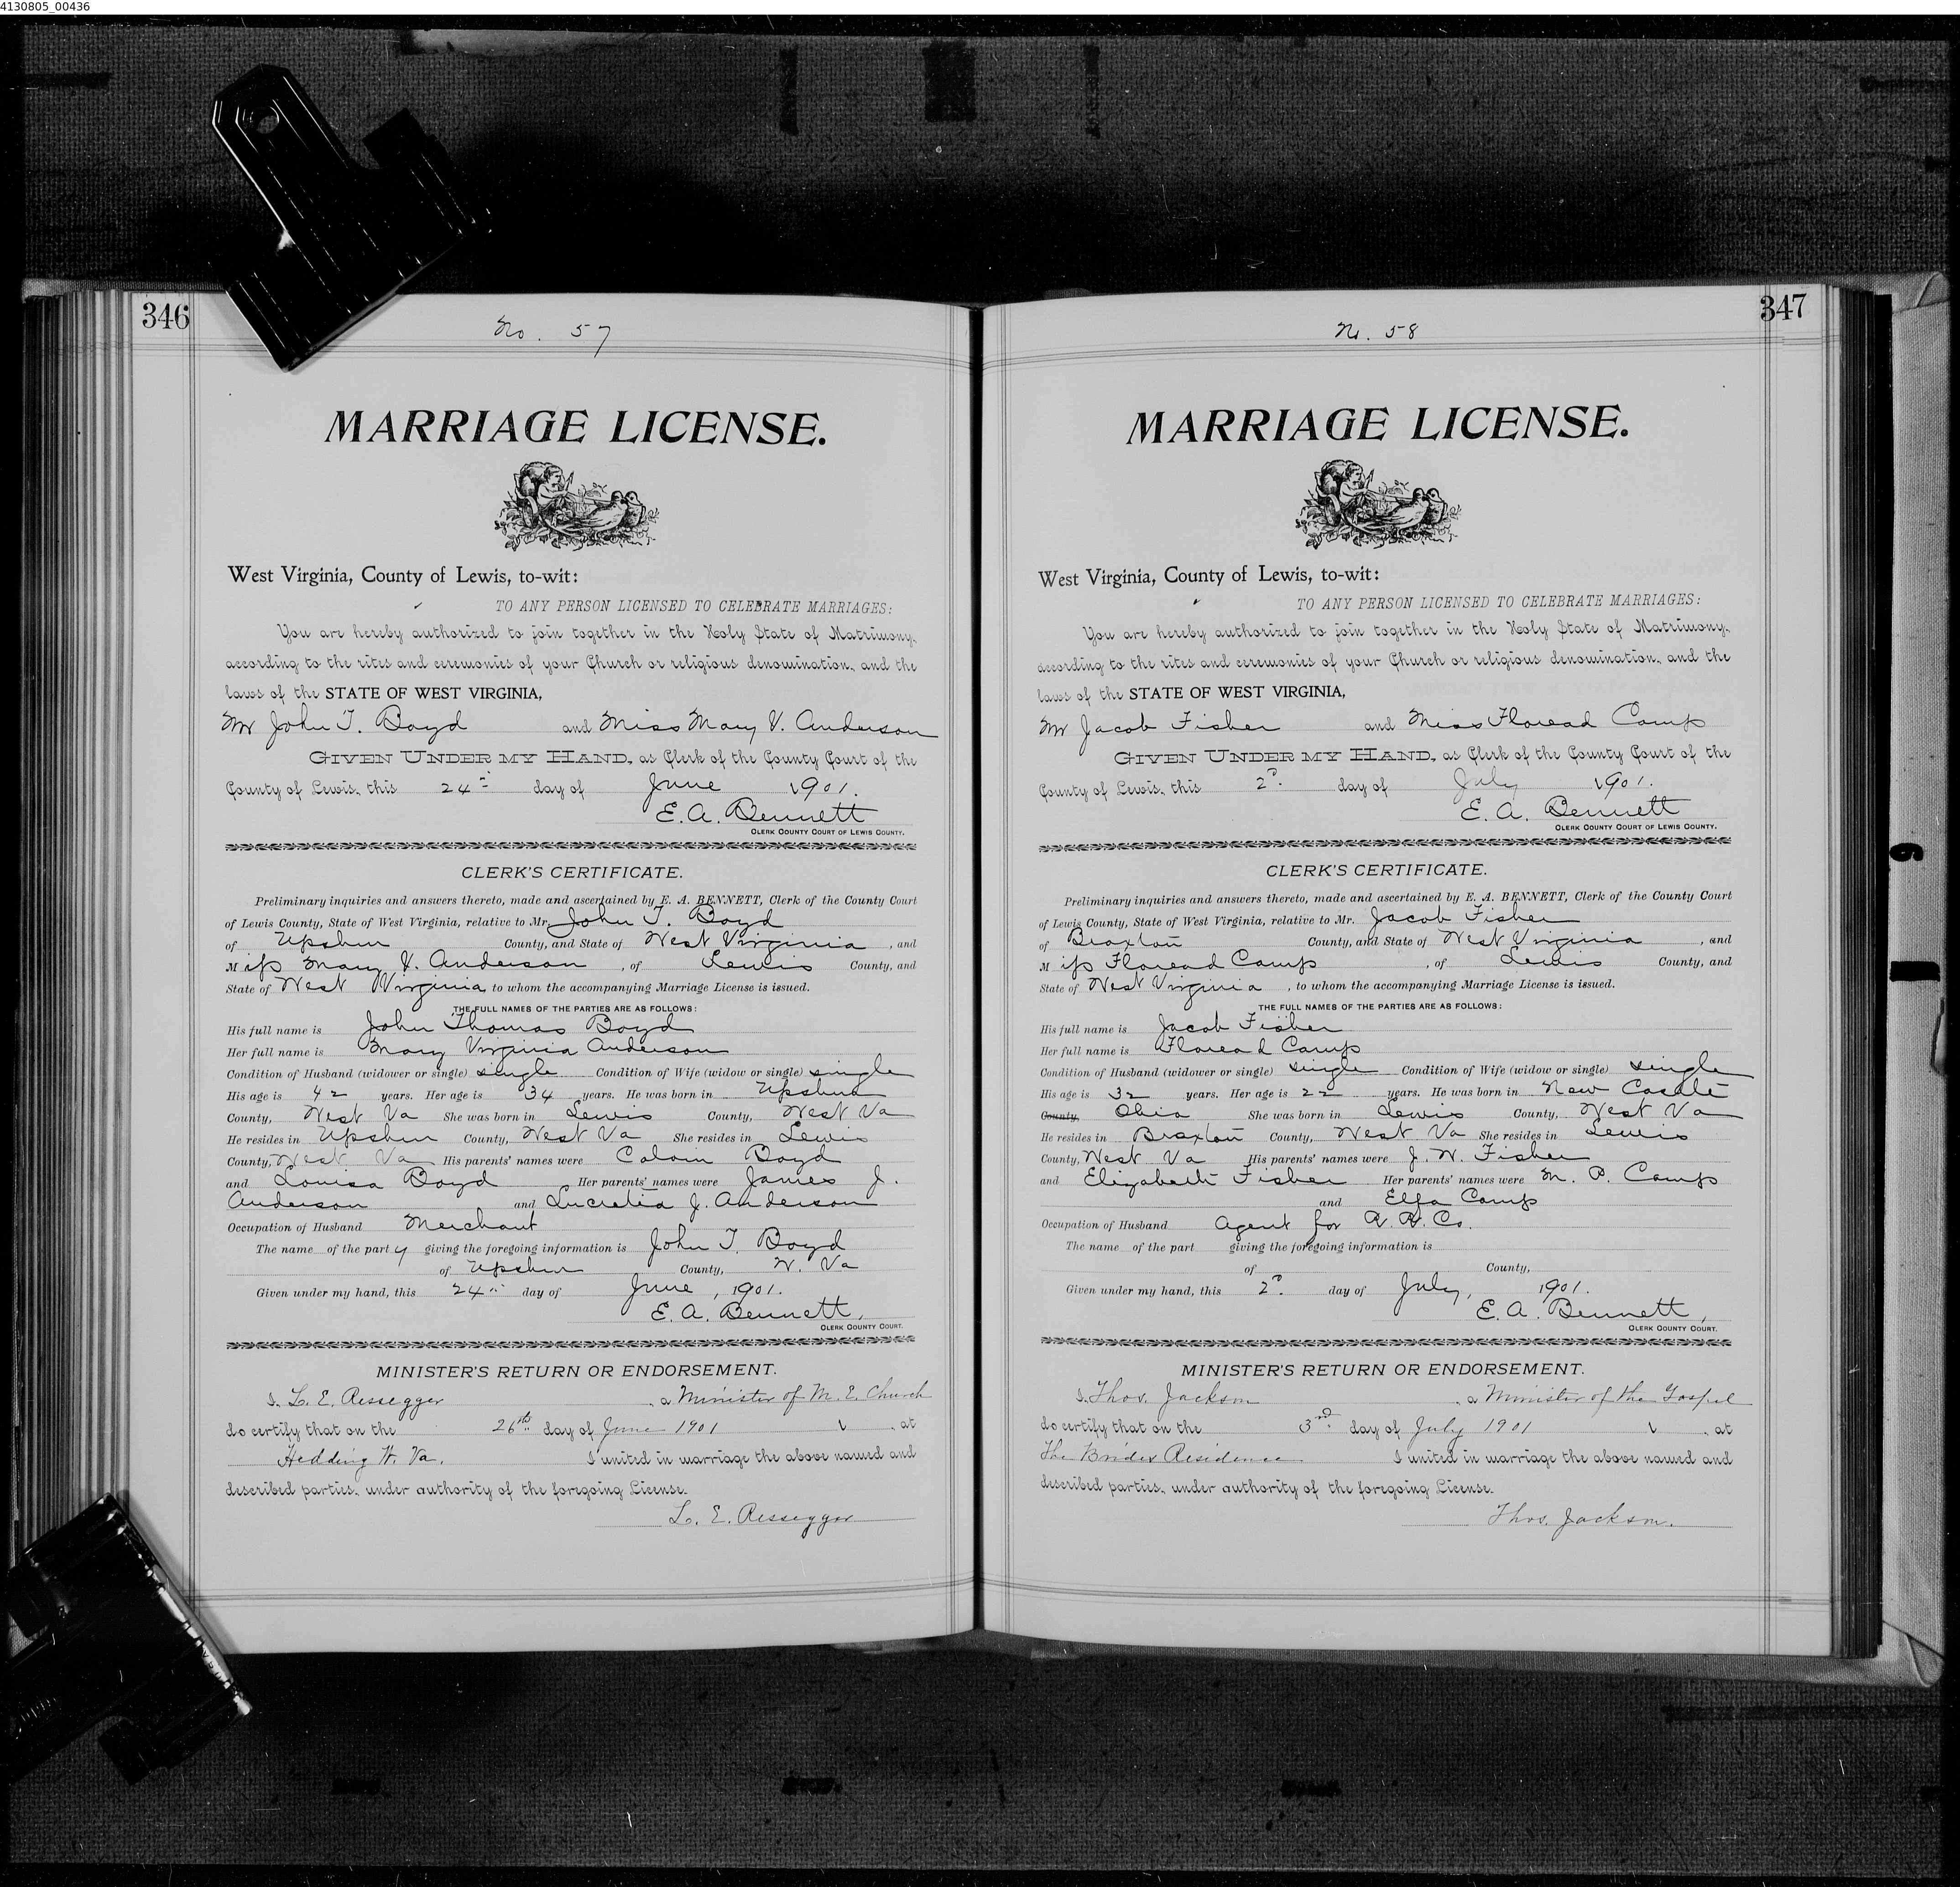 4130805_00436
346
No. 57
MARRIAGE LICENSE.
West Virginia, County of Lewis, to-wit:
TO ANY PERSON LICENSED TO CELEBRATE MARRIAGES:
You are hereby authorized to join together in the Holy State of Matrimony,
according to the rites and ceremonies of your Church or religious denomination, and the
laws of the STATE OF WEST VIRGINIA,
Mr John T. Boyd and Miss Mary V. Anderson
GIVEN UNDER MY HAND, as Clerk of the County Court of the
County of Lewis, this 24" day of June 1901.
E. A. Bennett
CLERK COUNTY COURT OF LEWIS COUNTY.
CLERK'S CERTIFICATE.
Preliminary inquiries and answers thereto, made and ascertained by E. A. BENNETT, Clerk of the County Court
of Lewis County, State of West Virginia, relative to Mr. John T. Boyd
of Upshur County, and State of West Virginia, and
Miss Mary V. Anderson, of Lewis County, and
State of West Virginia, to whom the accompanying Marriage License is issued.
THE FULL NAMES OF THE PARTIES ARE AS FOLLOWS:
His full name is John Thomas Boyd
Her full name is Mary Virginia Anderson
Condition of Husband (widower or single) single Condition of Wife (widow or single) single
His age is 42 years. Her age is 34 years. He was born in Upshur
County, West Va She was born in Lewis County, West Va
He resides in Upshur County, West Va She resides in Lewis
County, West Va His parents' names were Calvin Boyd
and Louisa Boyd Her parents' names were James J.
Anderson and Lucretia J. Anderson
Occupation of Husband Merchant
The name of the party giving the foregoing information is John T. Boyd
of Upshur County, W. Va
Given under my hand, this 24" day of June, 1901.
E. A. Bennett,
CLERK COUNTY COURT.
MINISTER'S RETURN OR ENDORSEMENT.
I, L. E. Ressegger, a Minister of M. E. Church
do certify that on the 26th day of June 1901 1 , at
Hedding W. Va. I united in marriage the above named and
described parties, under authority of the foregoing License.
L. E. Ressegger
347
No. 58
MARRIAGE LICENSE.
West Virginia, County of Lewis, to-wit:
TO ANY PERSON LICENSED TO CELEBRATE MARRIAGES:
You are hereby authorized to join together in the Holy State of Matrimony,
according to the rites and ceremonies of your Church or religious denomination, and the
laws of the STATE OF WEST VIRGINIA,
Mr Jacob Fisher and Miss Floread Camp
GIVEN UNDER MY HAND, as Clerk of the County Court of the
County of Lewis, this 2" day of July 1901.
E. A. Bennett
CLERK COUNTY COURT OF LEWIS COUNTY.
CLERK'S CERTIFICATE.
Preliminary inquiries and answers thereto, made and ascertained by E. A. BENNETT, Clerk of the County Court
of Lewis County, State of West Virginia, relative to Mr. Jacob Fisher
of Braxton County, and State of West Virginia, and
Miss Floread Camp, of Lewis County, and
State of West Virginia, to whom the accompanying Marriage License is issued.
THE FULL NAMES OF THE PARTIES ARE AS FOLLOWS:
His full name is Jacob Fisher
Her full name is Floread Camp
Condition of Husband (widower or single) single Condition of Wife (widow or single) single
His age is 32 years. Her age is 22 years. He was born in New Casale
County, Ohio She was born in Lewis County, West Va
He resides in Braxton County, West Va She resides in Lewis
County, West Va His parents' names were J. W. Fisher
and Elizabeth Fisher Her parents' names were M. P. Camp
and Elfa Camp
Occupation of Husband Agent for R. R. Co.
The name of the part giving the foregoing information is
of County,
Given under my hand, this 2" day of July, 1901.
E. A. Bennett,
CLERK COUNTY COURT.
MINISTER'S RETURN OR ENDORSEMENT.
I, Thos. Jackson, a Minister of the Gospel
do certify that on the 3rd day of July 1901 1 , at
The Brides Residence I united in marriage the above named and
described parties, under authority of the foregoing License.
Thos. Jackson.